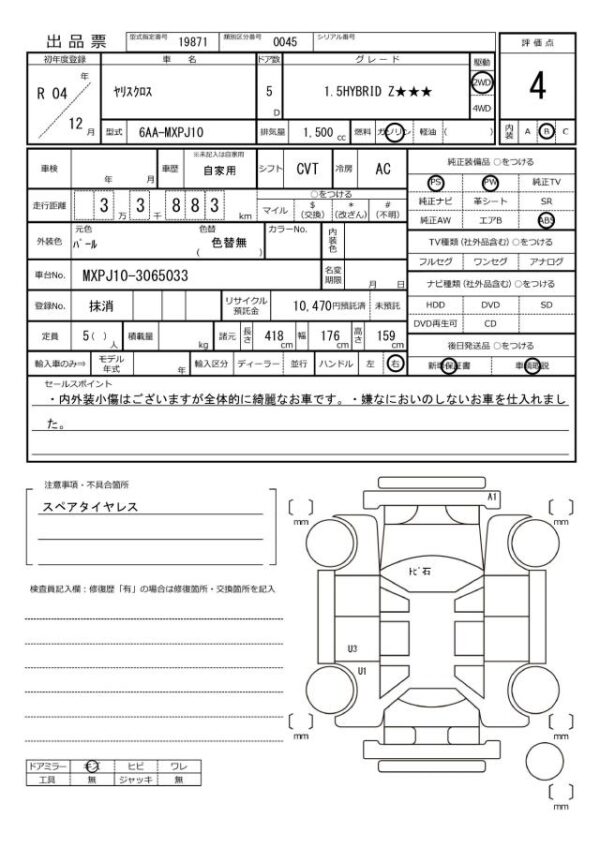 出品票 型式指定番号 19871 類別区分番号 0045 シリアル番号
評価点
初年度登録 車名 ドア数 グレード 駆動
R 04 年 ヤリスクロス 5 D 1.5HYBRID Z★★★ 2WD 4
4WD
12 月 型式 6AA-MXPJ10 排気量 1,500 cc 燃料 ガソリン 軽油 ( ) 内装 A B C
車検 年 月 車歴 ※未記入は自家用 自家用 シフト CVT 冷房 AC 純正装備品 ○をつける
PS PW 純正TV
走行距離 3 万 3 千 8 8 3 km ○をつける
マイル $ (交換) * (改ざん) # (不明) 純正ナビ 革シート SR
純正AW エアB ABS
外装色 元色 パール 色替 色替無 ( ) カラーNo. 内装色
TV種類 (社外品含む) ○をつける
フルセグ ワンセグ アナログ
車台No. MXPJ10-3065033 名変期限 月 日
ナビ種類 (社外品含む) ○をつける
登録No. 抹消 リサイクル預託金 10,470円預託済 未預託 HDD DVD SD
DVD再生可 CD
定員 5 ( ) 人 積載量 kg 諸元 長さ 418 cm 幅 176 cm 高さ 159 cm
後日発送品 ○をつける
輸入車のみ⇒ モデル年式 年 輸入区分 ディーラー 並行 ハンドル 左 右 新車保証書 車輌取説
セールスポイント
・内外装小傷はございますが全体的に綺麗なお車です。・嫌なにおいのしないお車を仕入れまし
た。
注意事項・不具合箇所
スペアタイヤレス
検査員記入欄：修復歴「有」の場合は修復箇所・交換箇所を記入
A1
mm mm
ﾄﾋﾞ石
U3
U1
mm mm
ドアミラー キズ ヒビ ワレ
工具 無 ジャッキ 無
mm